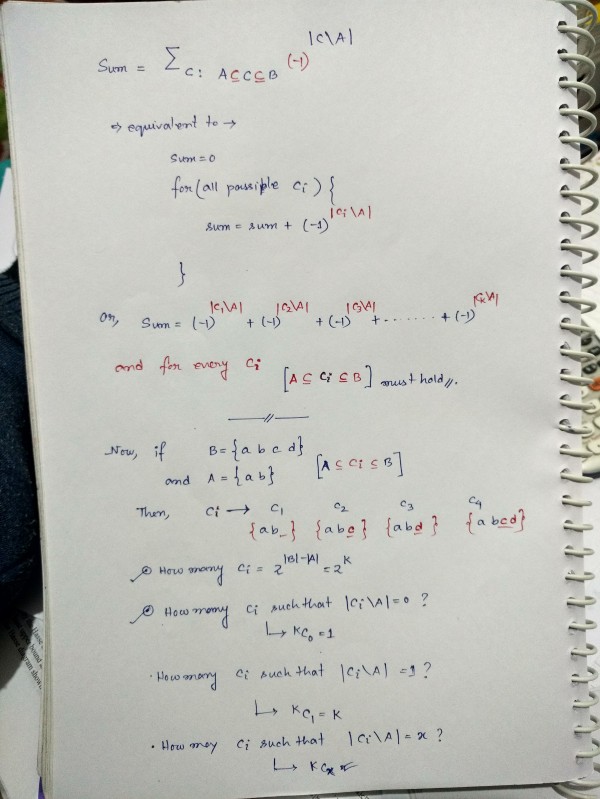 Sum = Σ C: A ⊆ C ⊆ B (-1)^|C\A|
⇒ equivalent to →
Sum = 0
for (all possible Ci) {
sum = sum + (-1)^|Ci\A|
}
Or, Sum = (-1)^|C1\A| + (-1)^|C2\A| + (-1)^|C3\A| + ....... + (-1)^|Ck\A|
and for every Ci [A ⊆ Ci ⊆ B] must hold //.
//
Now, if B = {a b c d}
and A = {a b} [A ⊆ Ci ⊆ B]
Then, Ci → C1 C2 C3 C4
{ab_} {abc} {abd} {abcd}
How many Ci = 2^|B|-|A| = 2^K
How many Ci such that |Ci\A| = 0 ?
↳ KC0 = 1
· How many Ci such that |Ci\A| = 1 ?
↳ KC1 = K
· How mey Ci such that |Ci\A| = x ?
↳ KCx